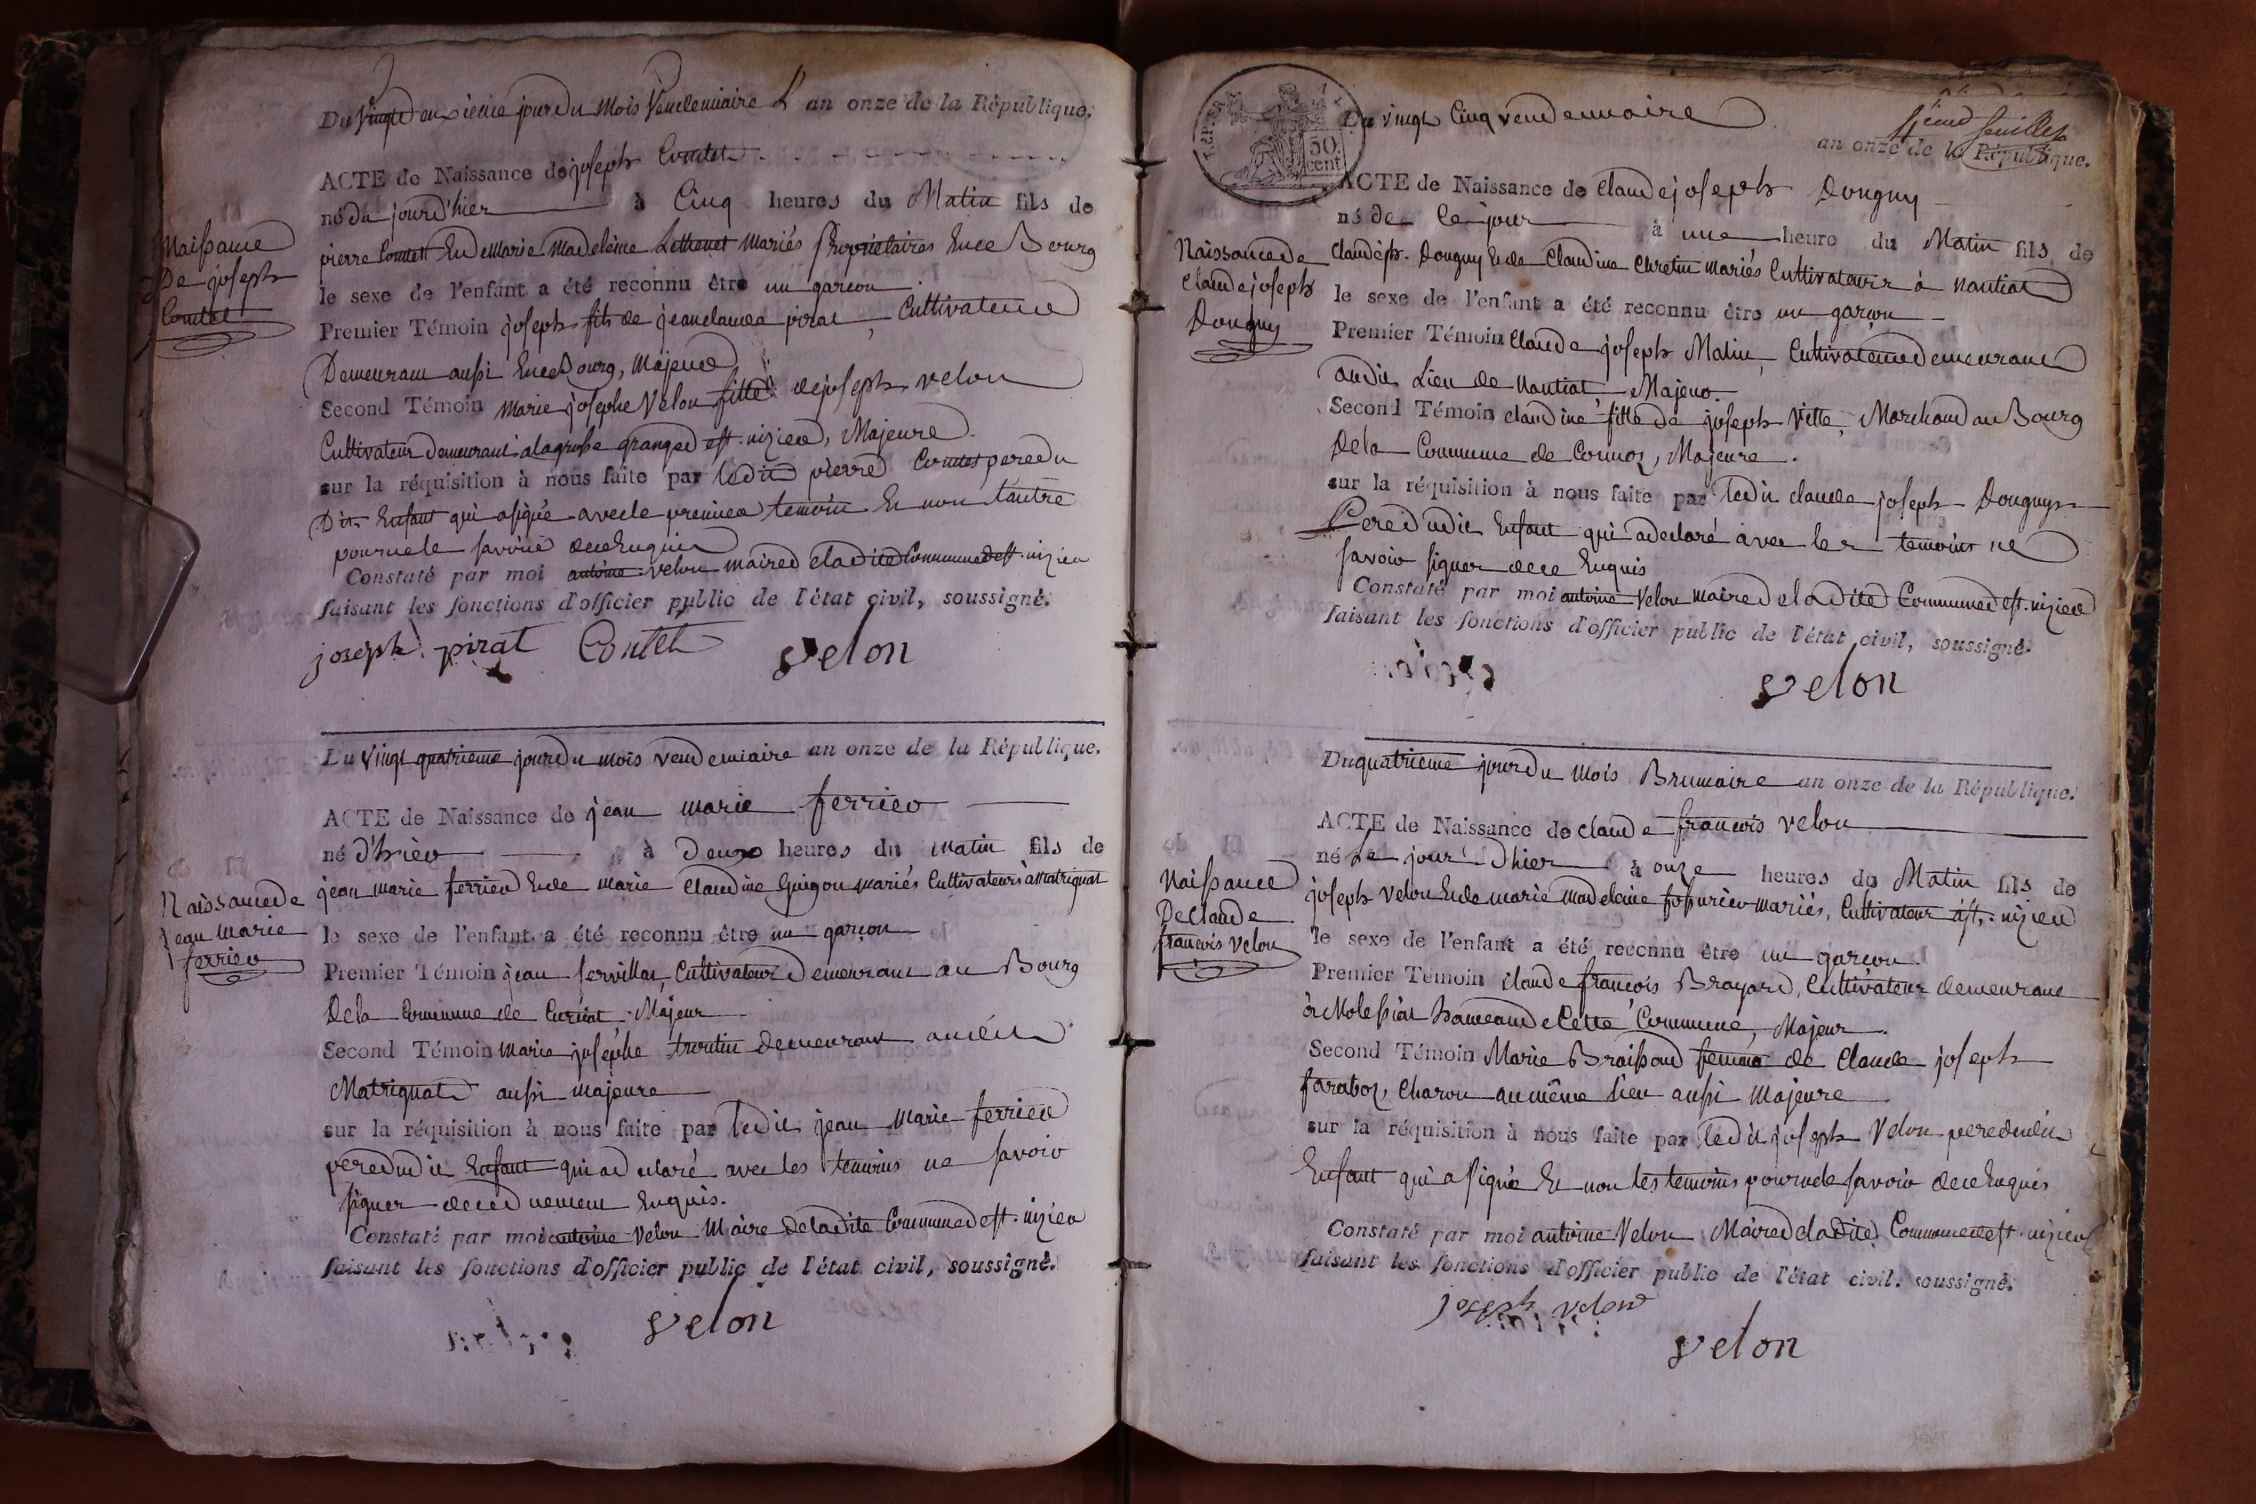 Du vingt deuxieme jour du mois Vendemiaire L'an onze de la République.
ACTE de Naissance de joseph Contet
né du jourd'hier à Cinq heures du Matin fils de
pierre Contet Et de marie madeleine mariés Propriétaires En ce Bourg
le sexe de l'enfant a été reconnu être un garcon
Premier Témoin joseph fils de jean claude pirat, Cultivateur
Demeurant aussi En ce Bourg, Majeur
Second Témoin marie josephe Velon fille de joseph velon
Cultivateur demeurant a la grosse grange de st. nizier, Majeure.
sur la réquisition à nous faite par ledit pierre Contet pere du
Dit Enfant qui a signé avec le premier temoin Et non l'autre
pour ne le savoir de ce Enquis
Constaté par moi antoine velon maire de la dite Commune de st. nizier
faisant les fonctions d'officier public de l'état civil, soussigné.
joseph pirat Contet velon
Naissance
De joseph
Contet
Du vingt quatrieme jour du mois vendemiaire an onze de la République.
ACTE de Naissance de jean marie ferrier
né d'hier à Deux heures du matin fils de
jean marie ferrier Et de marie claudine Guigon mariés Cultivateurs à Matriquat
le sexe de l'enfant a été reconnu être un garçon
Premier Témoin jean servillat, Cultivateur Demeurant au Bourg
De la Commune de Curciat Majeur
Second Témoin marie josephe demeurant audit
Matriquat aussi majeure
sur la réquisition à nous faite par ledit jean Marie ferrier
pere dudit Enfant qui a declaré avec les temoins ne savoir
signer de ce duement Enquis.
Constaté par moi antoine Velon Maire De la dite Commune de st. nizier
faisant les fonctions d'officier public de l'état civil, soussigné.
velon
Naissance de
jean marie
ferrier
Du vingt Cinq vendemiaire
feuillet
an onze de la République.
50
cent
ACTE de Naissance de Claude joseph Donguy
né de ce jour à une heure du Matin fils de
claude jph. Donguy Et de Claudine Chretin mariés Cultivateurs à nantiat
le sexe de l'enfant a été reconnu être un garçon
Premier Témoin Claude joseph Matin, Cultivateur demeurant
audit Lieu de nantiat Majeur.
Second Témoin claudine fille de joseph Vitte, Marchand au Bourg
De la Commune de Cormoz, Majeure.
sur la réquisition à nous faite par ledit claude joseph Donguy
Pere dudit Enfant qui a declaré avec les temoins ne
savoir signer de ce Enquis
Constaté par moi antoine Velon maire de la dite Commune de st. nizier
faisant les fonctions d'officier public de l'état civil, soussigné.
velon
Naissance de
Claude joseph
Donguy
Du quatrieme jour du mois Brumaire an onze de la République.
ACTE de Naissance de claude francois velon
né Le jour d'hier à onze heures du Matin fils de
joseph velon Et de marie madeleine mariés, Cultivateur à st. nizier
le sexe de l'enfant a été reconnu être un garcon.
Premier Témoin claude francois Brayard, Cultivateur demeurant
à Molessiat hameau de Cette Commune, Majeur.
Second Témoin Marie Braissoud femme de Claude joseph
faraboz, Charon au même lieu aussi Majeure
sur la réquisition à nous faite par ledit joseph Velon pere dudit
Enfant qui a signé Et non les temoins pour ne le savoir de ce Enquis
Constaté par moi antoine Velon Maire de la Dite Commune de st. nizier
faisant les fonctions d'officier public de l'état civil. soussigné.
joseph velon
velon
Naissance
De claude
francois velon